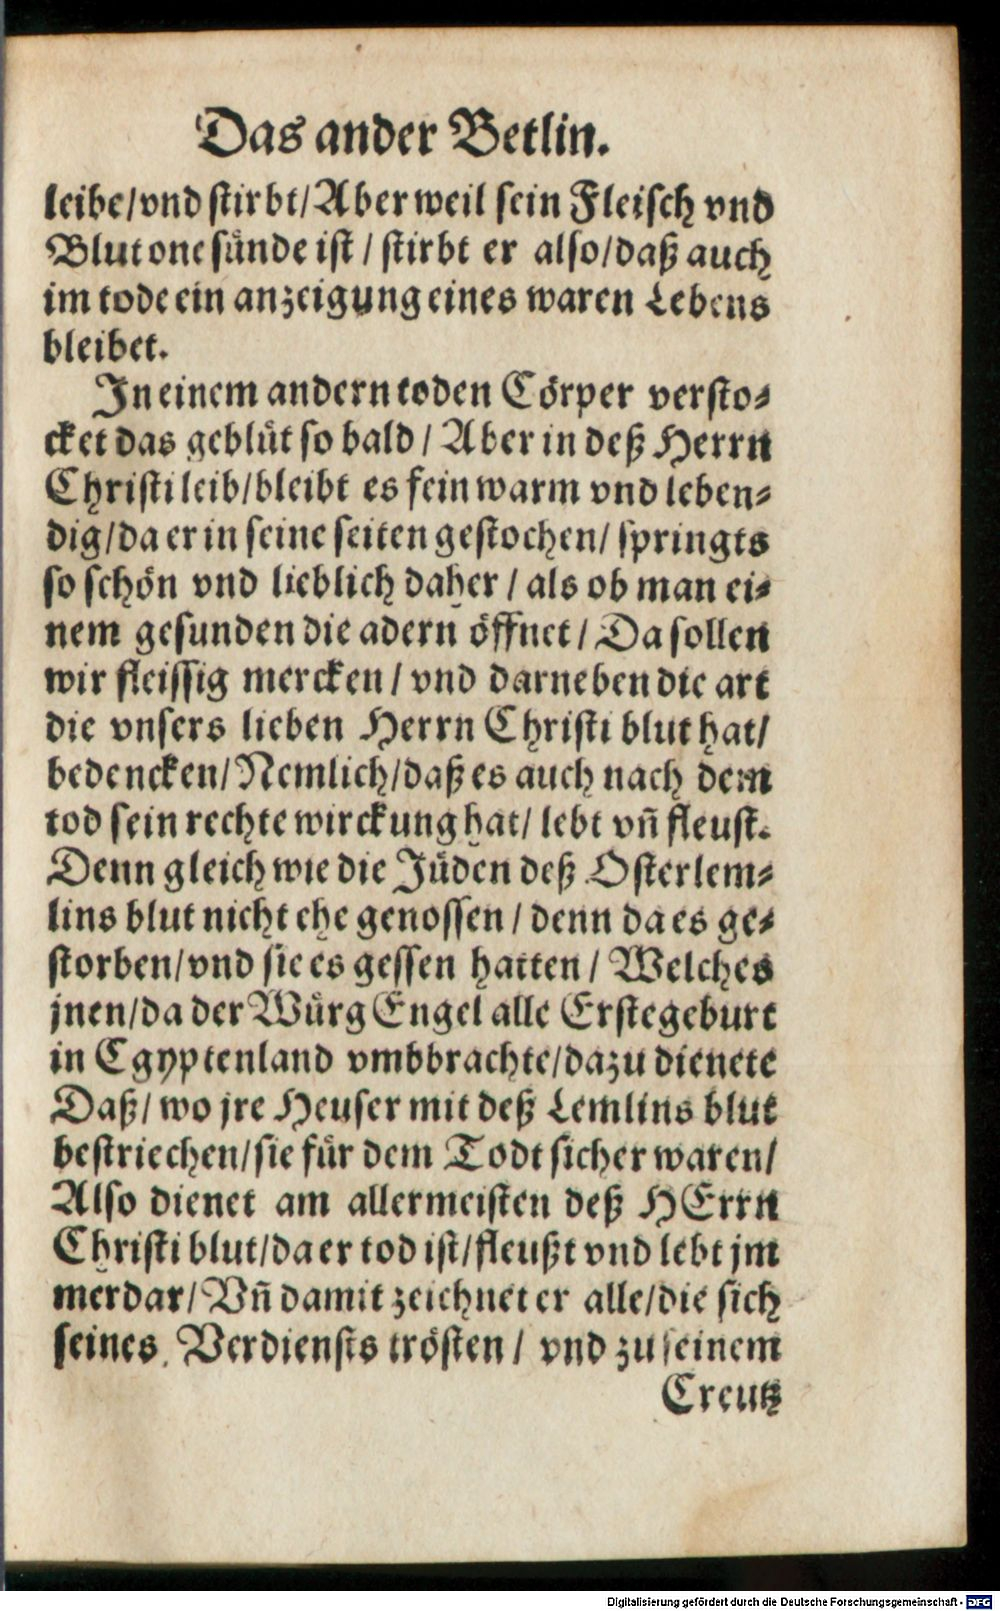 Das ander Betlin.
leibe/vnd stirbt/Aber weil sein Fleisch vnd
Blut one sünde ist / stirbt er also/daß auch
im tode ein anzeigung eines waren Lebens
bleibet.
In einem andern toden Cörper versto-
cket das geblüt so bald / Aber in deß Herrn
Christi leib/bleibt es fein warm vnd leben-
dig/da er in seine seiten gestochen/ springts
so schön vnd lieblich daher / als ob man ei-
nem gesunden die adern öffnet / Da sollen
wir fleissig mercken / vnd darneben die art
die vnsers lieben Herrn Christi blut hat/
bedencken/Nemlich/daß es auch nach dem
tod sein rechte wirckung hat/ lebt vñ fleust.
Denn gleich wie die Jüden deß Osterlem-
lins blut nicht ehe genossen / denn da es ge-
storben/vnd sie es gessen hatten / Welches
jnen/da der Würg Engel alle Erstegeburt
in Egyptenland vmbbrachte/dazu dienete
Daß/ wo jre Heuser mit deß Lemlins blut
bestriechen/sie für dem Todt sicher waren/
Also dienet am allermeisten deß HErrn
Christi blut/da er tod ist/fleußt vnd lebt jm
merdar/ Vñ damit zeichnet er alle/die sich
seines Verdiensts trösten / vnd zu seinem
Creutz
Digitalisierung gefördert durch die Deutsche Forschungsgemeinschaft - DFG